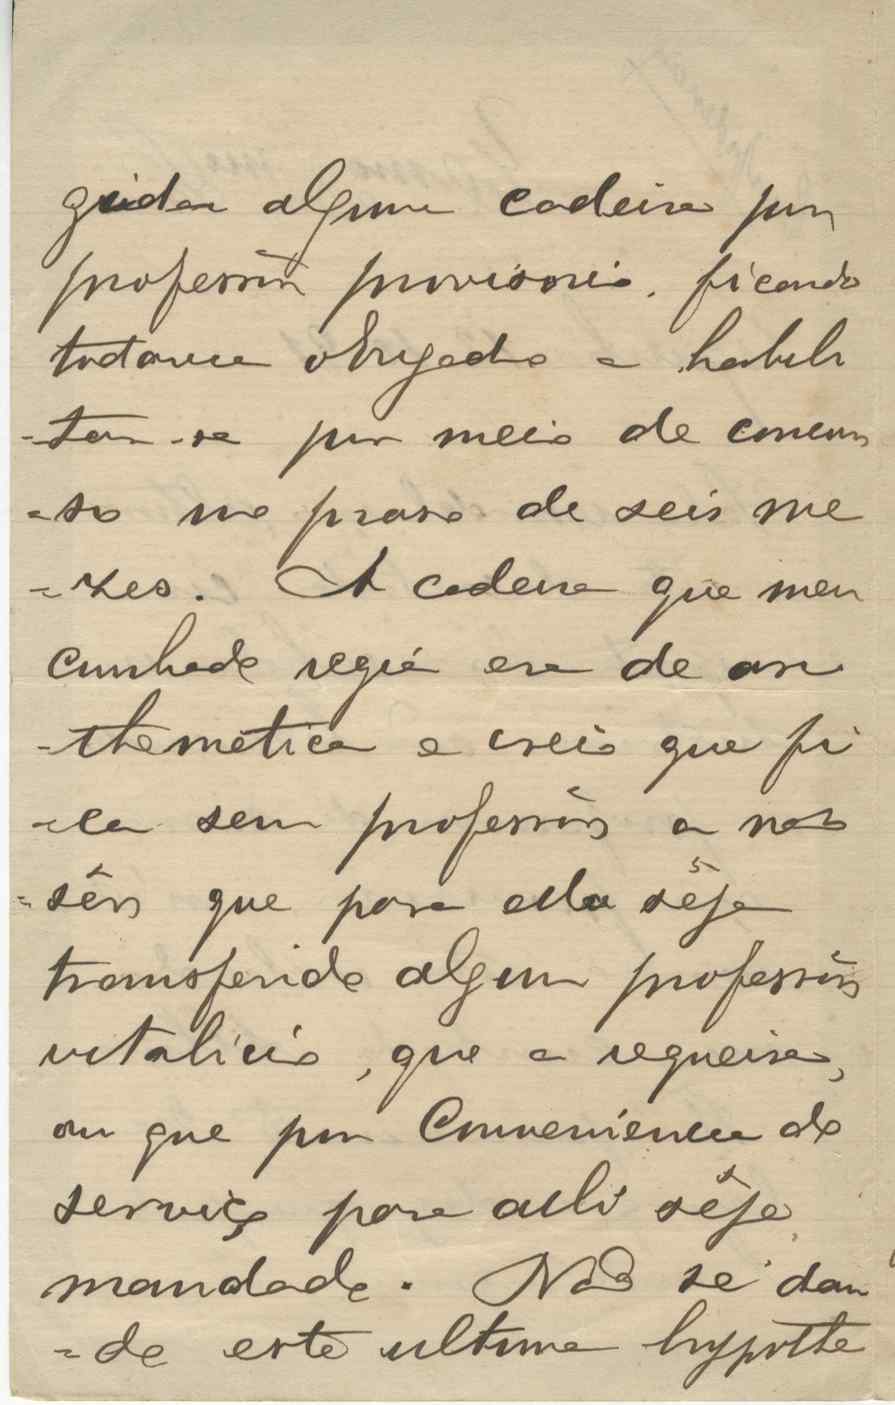 gida alguma cadeira por
professôr provisorio, ficando
todavia obrigado a habili
-tar-se por meio de concur
-so no praso de seis me
-zes. A cadeira que meu
cunhado regia era de ari
-thmetica e creio que fi
-ca sem professôr a não
-sêr que para ella sêja
transferido algum professôr
vitalicio, que a requeira,
ou que por conveniencia do
serviço para alli sêja
mandado. Não se dan
-do esta ultima hypothe